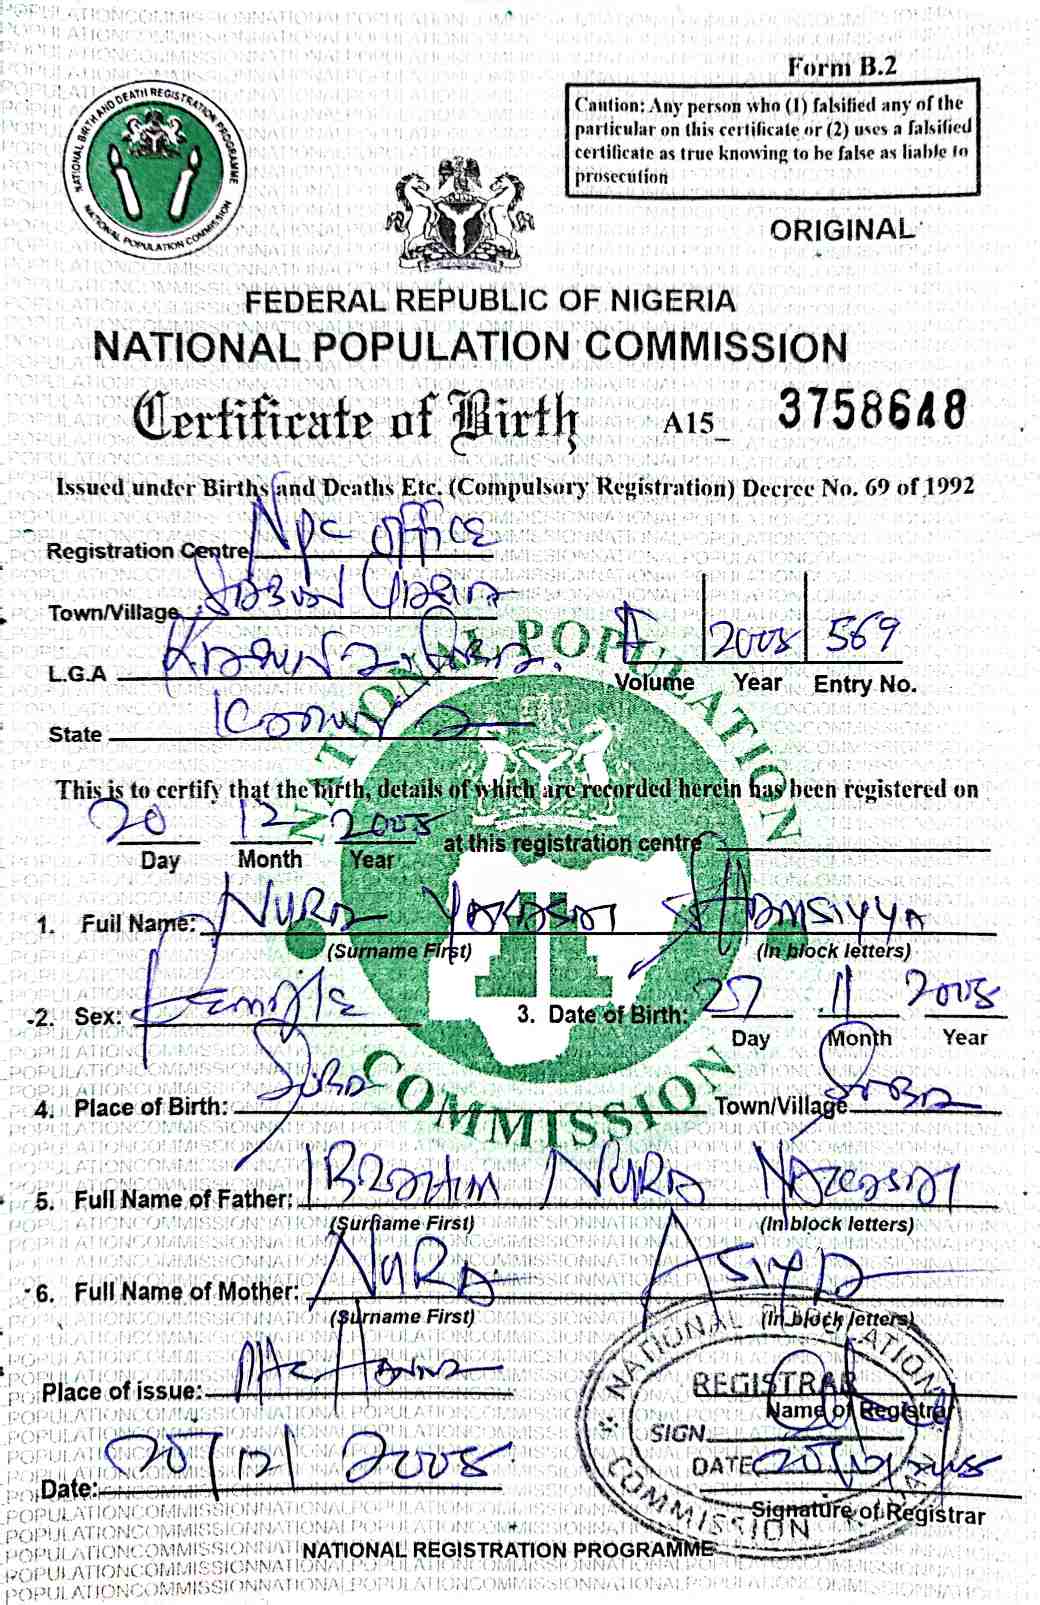 Form B.2
NATIONAL BIRTH AND DEATH REGISTRATION PROGRAMME
NATIONAL POPULATION COMMISSION
Caution: Any person who (1) falsified any of the
particular on this certificate or (2) uses a falsified
certificate as true knowing to be false as liable to
prosecution
ORIGINAL
FEDERAL REPUBLIC OF NIGERIA
NATIONAL POPULATION COMMISSION
Certificate of Birth A15_ 3758648
Issued under Births and Deaths Etc. (Compulsory Registration) Decree No. 69 of 1992
Registration Centre NPC OFFICE
Town/Village
L.G.A
2005 569
Volume Year Entry No.
State
NATIONAL POPULATION COMMISSION
This is to certify that the birth, details of which are recorded herein has been registered on
20 12 2005 at this registration centre
Day Month Year
1. Full Name: NURA SHAMSIYYA
(Surname First) (In block letters)
2. Sex: Female 3. Date of Birth: 27 11 2005
Day Month Year
4. Place of Birth: Town/Village
5. Full Name of Father: IBRAHIM NURA
(Surname First) (In block letters)
6. Full Name of Mother: NURA ASIYA
(Surname First) (In block letters)
Place of issue:
NATIONAL POPULATION COMMISSION
REGISTRAR
Name of Registrar
SIGN
DATE 20/12/2005
Date: 20/12/2005
Signature of Registrar
NATIONAL REGISTRATION PROGRAMME